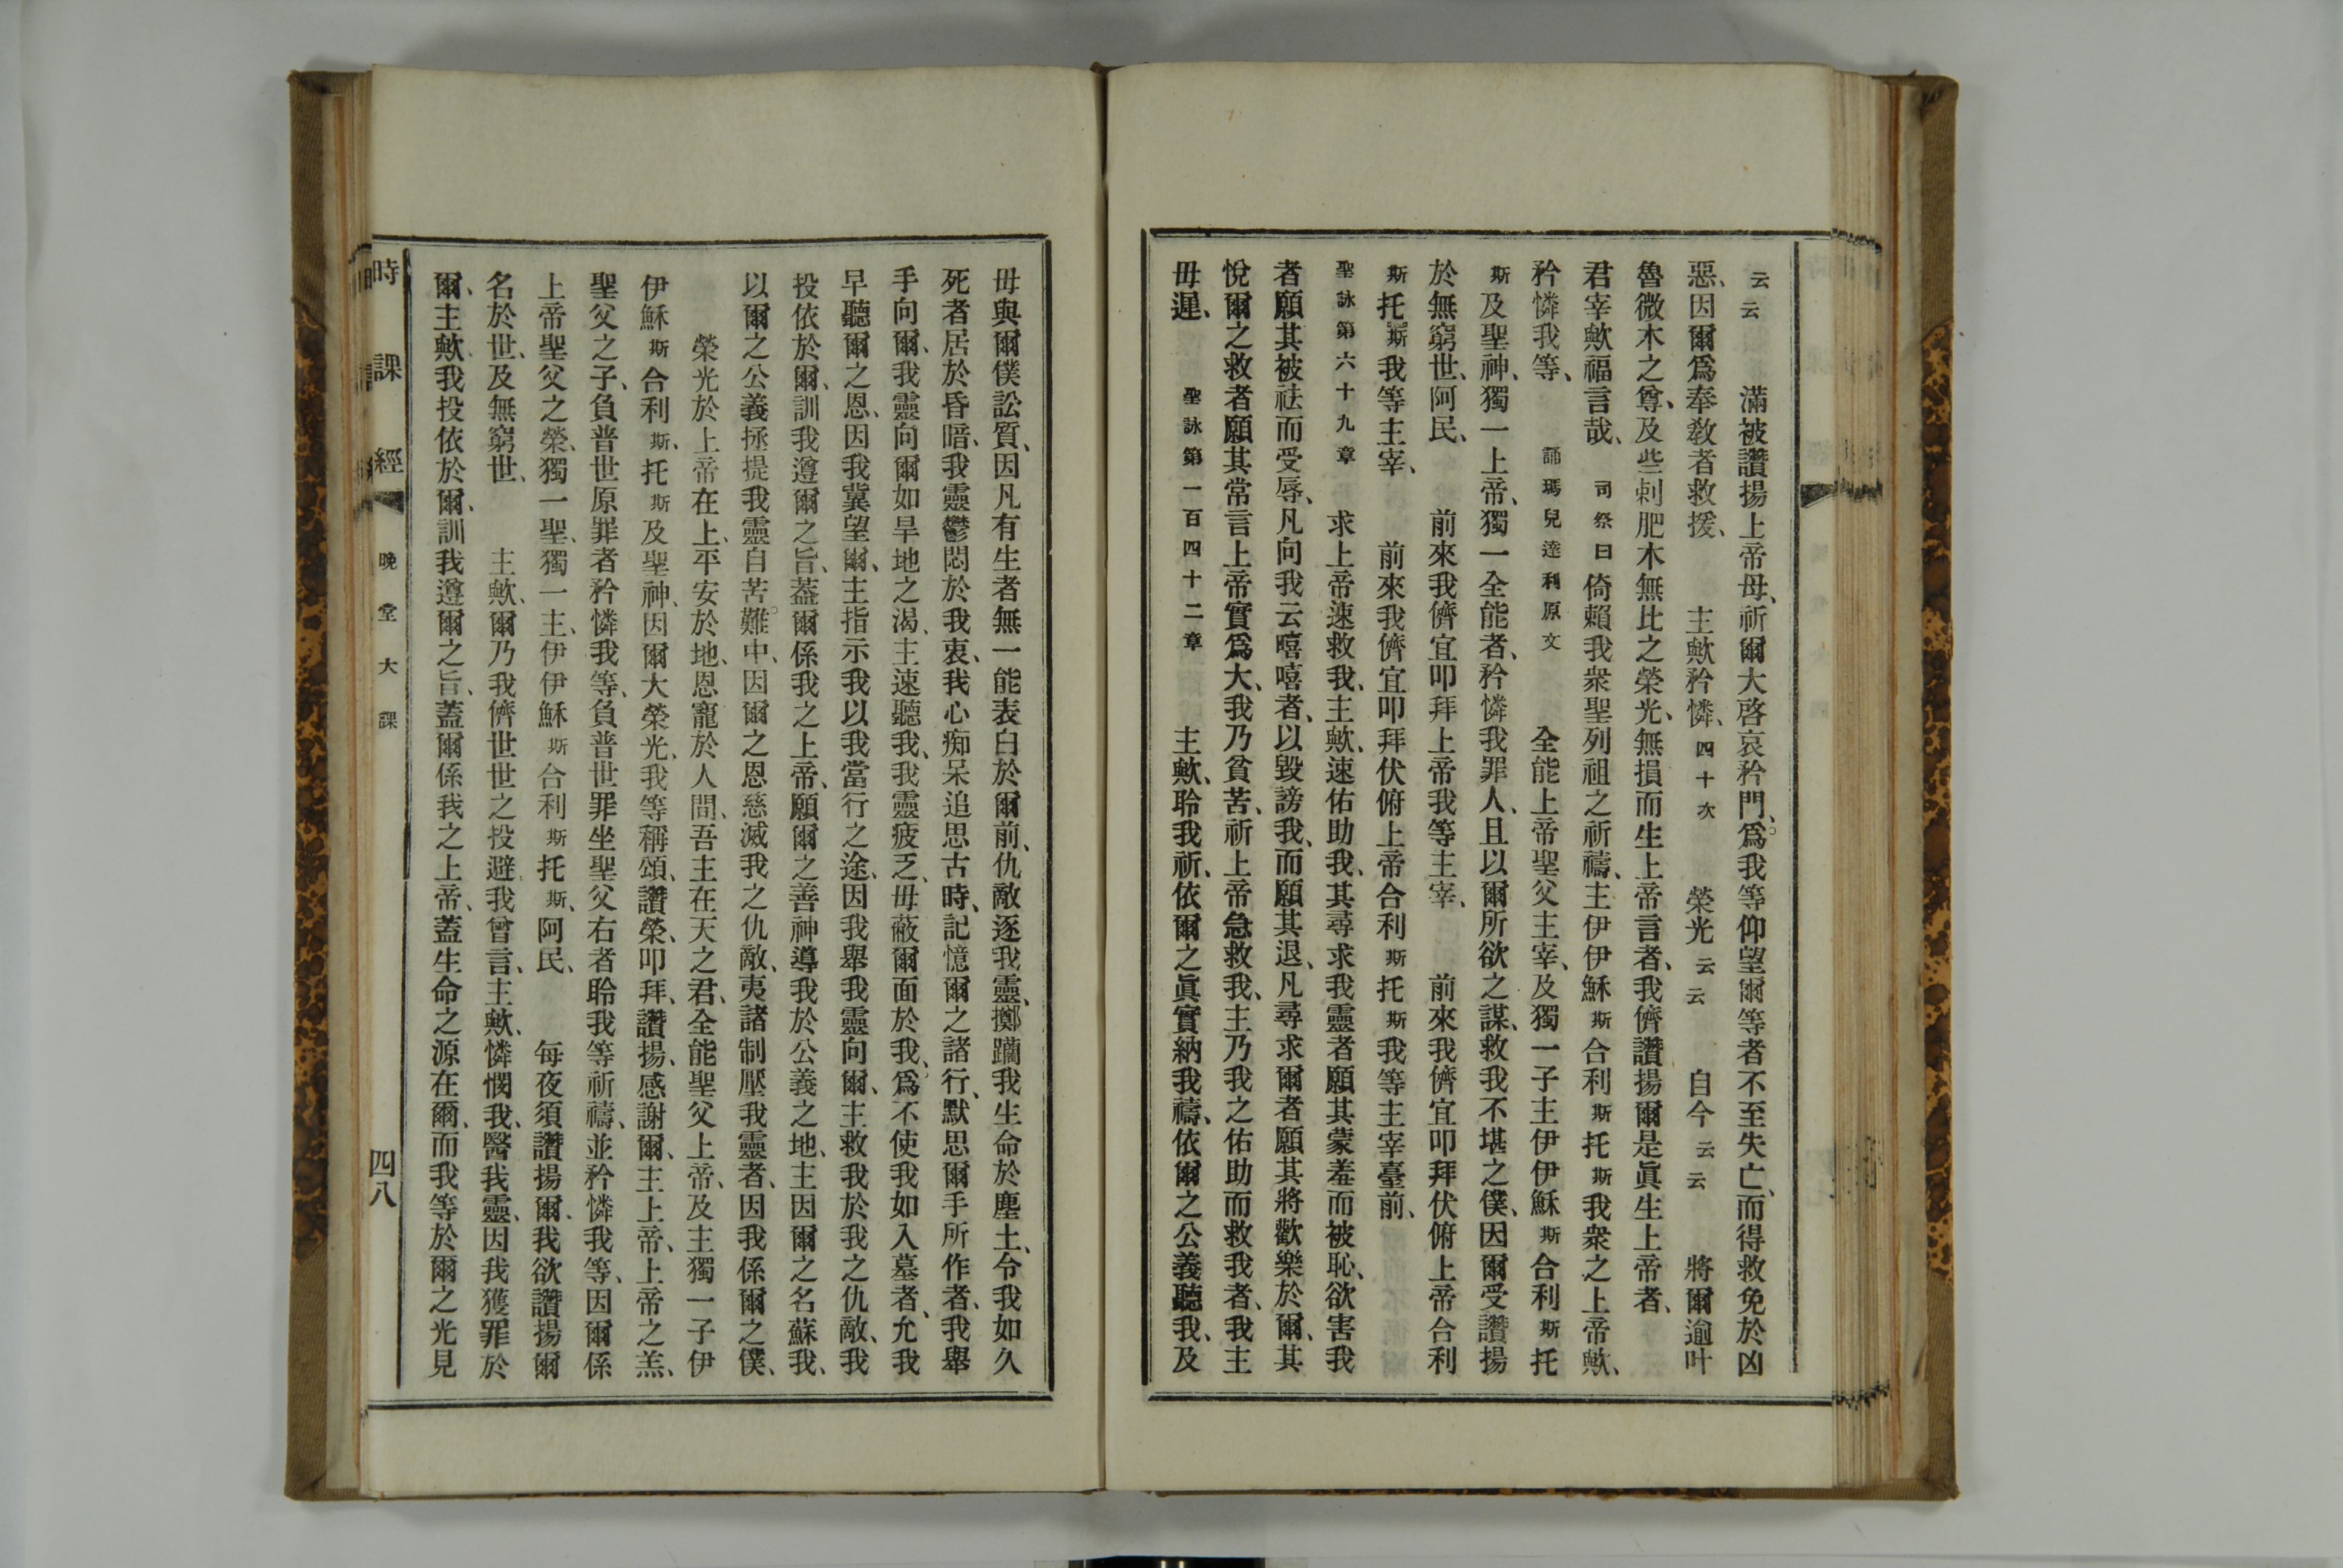 云云 滿被讚揚上帝母、祈爾大啓哀矜門、爲我等仰望爾等者不至失亡、而得救免於凶
惡、因爾爲奉敎者救援、 主歟矜憐、四十次 榮光云云 自今云云 將爾逾叶
魯微木之尊、及些剌肥木無比之榮光、無損而生上帝言者、我儕讚揚爾是眞生上帝者、
君宰歟福言哉、 司祭曰 倚賴我衆聖列祖之祈禱、主伊伊穌斯合利斯托斯我衆之上帝歟、
矜憐我等、 誦瑪兒達利原文 全能上帝聖父主宰、及獨一子主伊伊穌斯合利斯托
斯及聖神、獨一上帝、獨一全能者、矜憐我罪人、且以爾所欲之謀、救我不堪之僕、因爾受讚揚
於無窮世、阿民、 前來我儕宜叩拜上帝我等主宰、 前來我儕宜叩拜伏俯上帝合利
斯托斯我等主宰、 前來我儕宜叩拜伏俯上帝合利斯托斯我等主宰臺前、
聖詠第六十九章 求上帝速救我、主歟、速佑助我、其尋求我靈者願其蒙羞而被恥、欲害我
者願其被祛而受辱、凡向我云嘻嘻者、以毀謗我、而願其退、凡尋求爾者願其將歡樂於爾、其
悅爾之救者願其常言上帝實爲大、我乃貧苦、祈上帝急救我、主乃我之佑助而救我者、我主
毋遲、 聖詠第一百四十二章 主歟、聆我祈、依爾之眞實納我禱、依爾之公義聽我、及
毋與爾僕訟質、因凡有生者無一能表白於爾前、仇敵逐我靈、擲躪我生命於塵土、令我如久
死者居於昏暗、我靈鬱悶於我衷、我心痴呆追思古時、記憶爾之諸行、默思爾手所作者、我舉
手向爾、我靈向爾如旱地之渴、主速聽我、我靈疲乏、毋蔽爾面於我、爲不使我如入墓者、允我
早聽爾之恩、因我冀望爾、主指示我以我當行之途、因我舉我靈向爾、主救我於我之仇敵、我
投依於爾、訓我遵爾之旨、蓋爾係我之上帝、願爾之善神導我於公義之地、主因爾之名蘇我、
以爾之公義拯提我靈自苦難中、因爾之恩慈滅我之仇敵、夷諸制壓我靈者、因我係爾之僕、
榮光於上帝在上、平安於地、恩寵於人間、吾主在天之君、全能聖父上帝、及主獨一子伊
伊穌斯合利斯托斯及聖神、因爾大榮光、我等稱頌、讚榮、叩拜、讚揚、感謝爾、主上帝、上帝之羔、
聖父之子、負普世原罪者矜憐我等、負普世罪坐聖父右者聆我等祈禱、並矜憐我等、因爾係
上帝聖父之榮、獨一聖、獨一主、伊伊穌斯合利斯托斯、阿民、 每夜須讚揚爾、我欲讚揚爾
名於世、及無窮世、 主歟、爾乃我儕世世之投避、我曾言、主歟、憐憫我、醫我靈、因我獲罪於
爾、主歟、我投依於爾、訓我遵爾之旨、蓋爾係我之上帝、蓋生命之源在爾、而我等於爾之光見
時課經 晚堂大課 四八